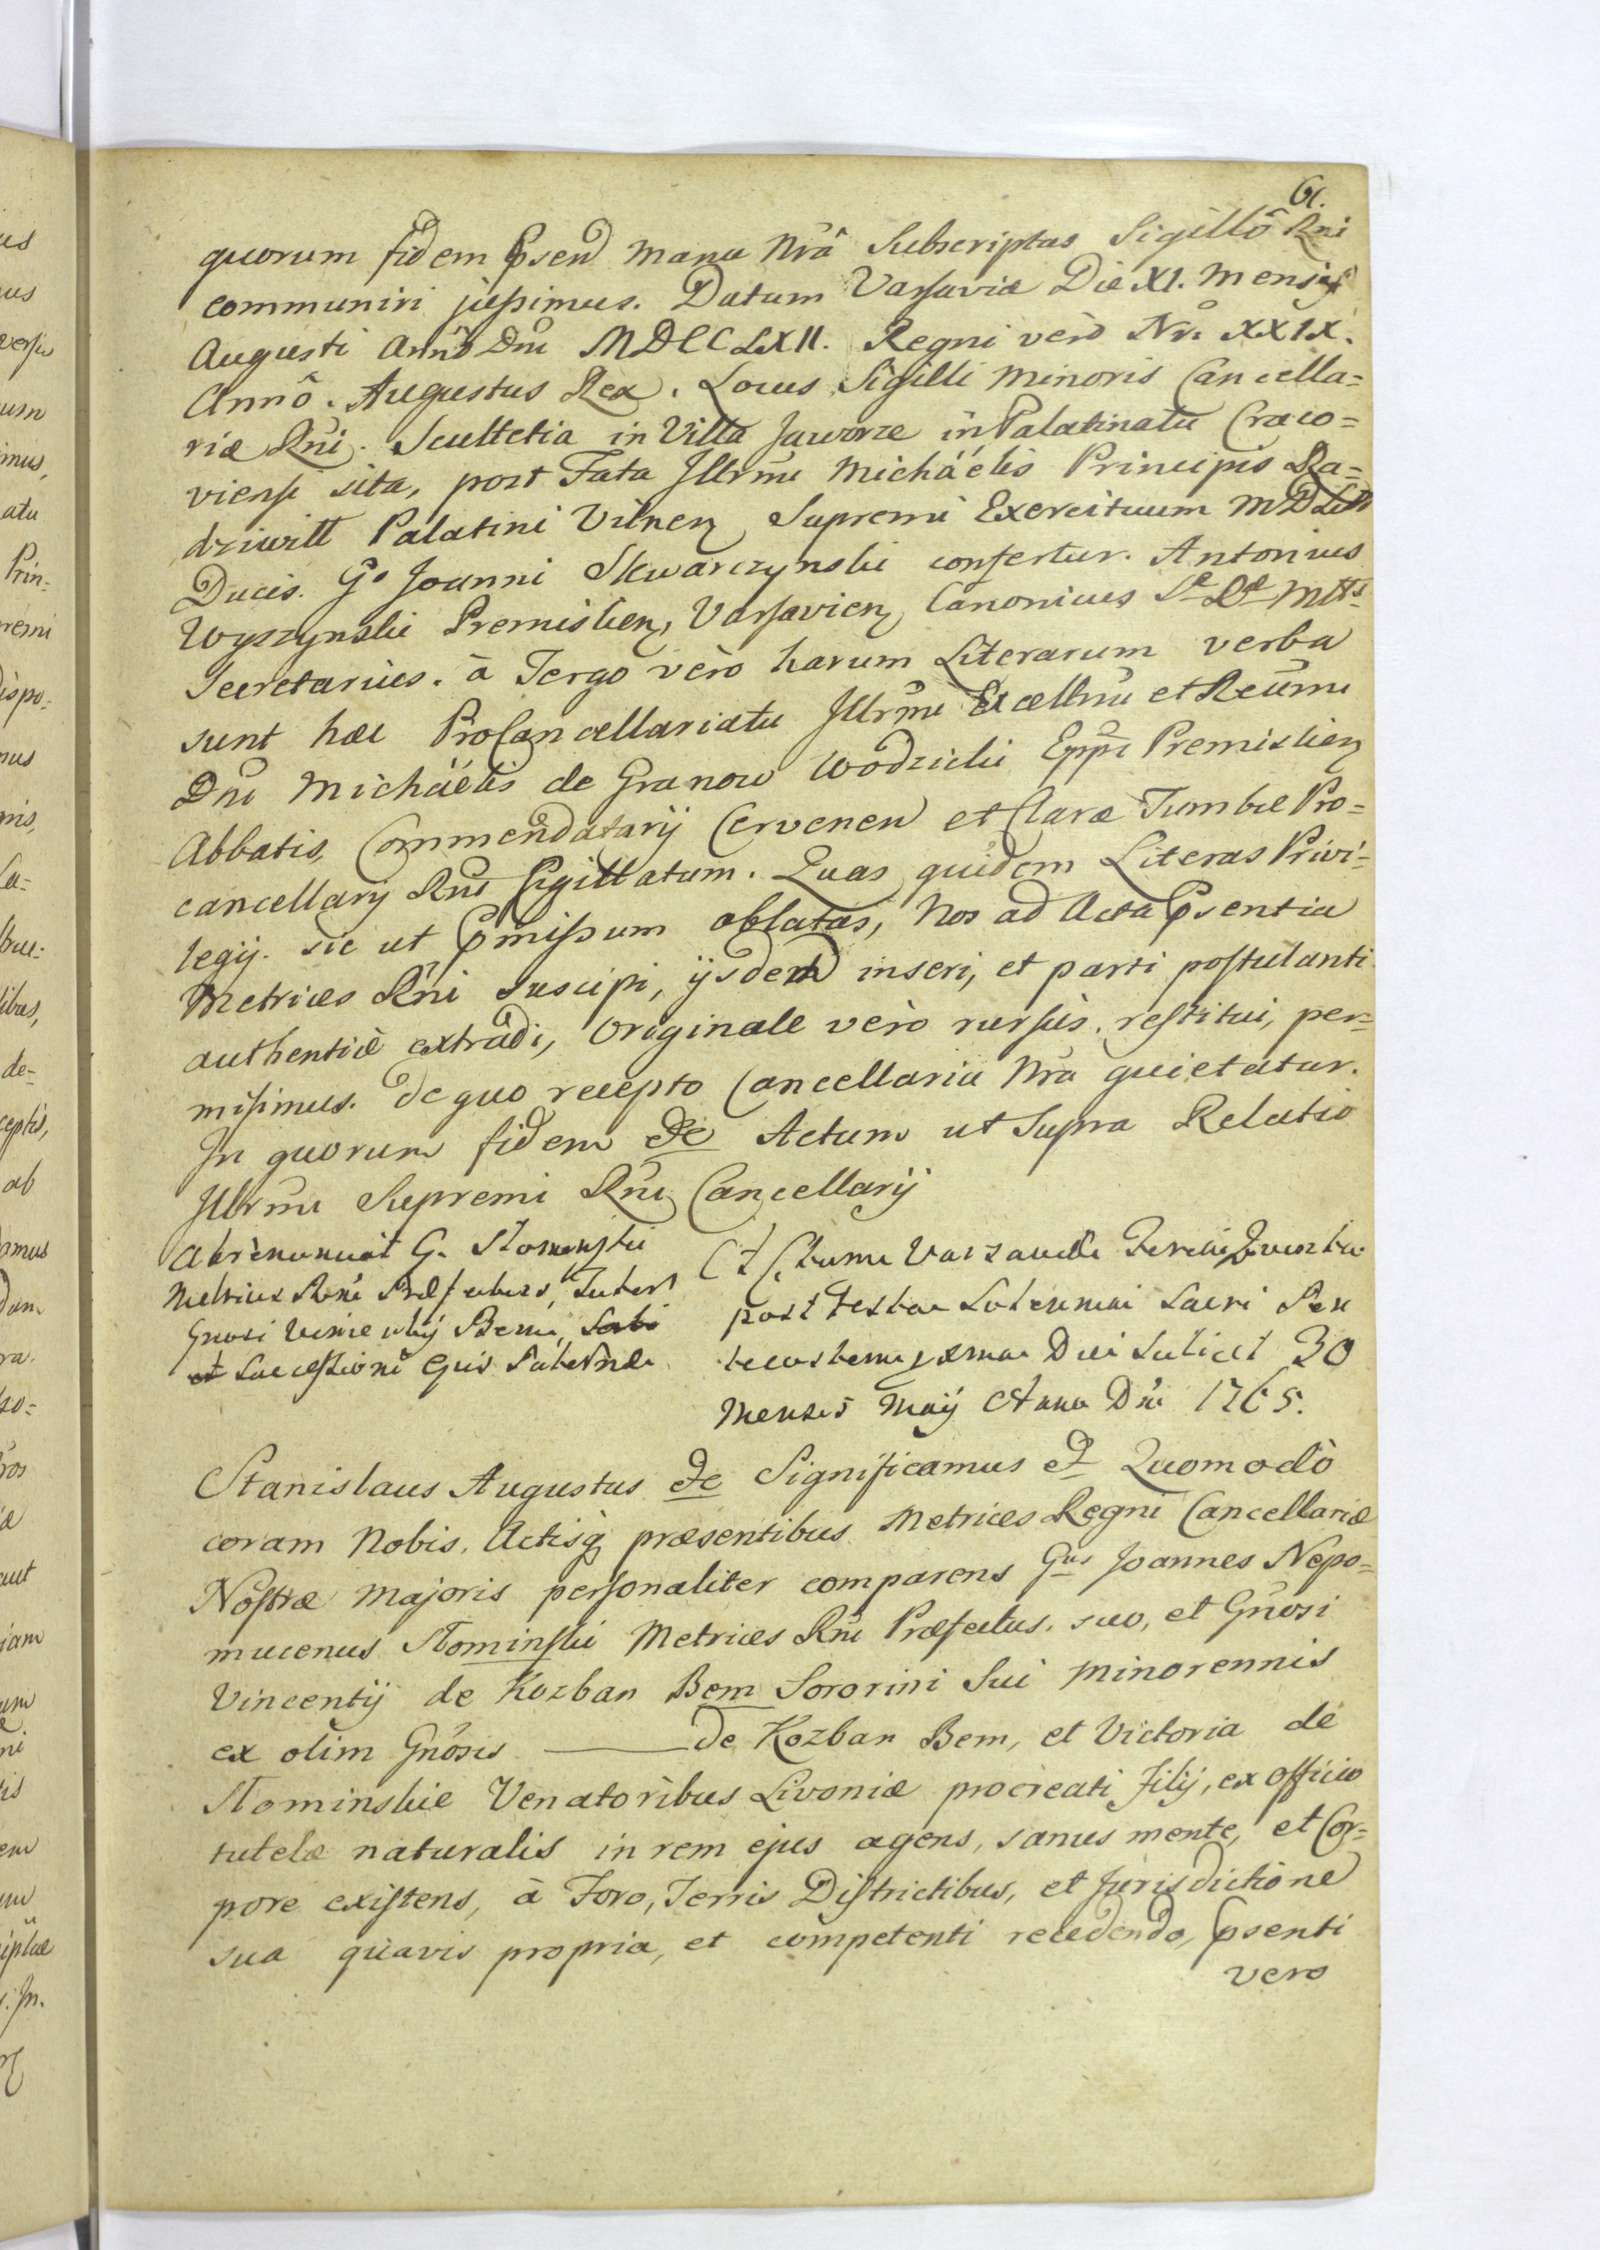 61.
quorum fidem Psen manu Nrâ Subscriptas Sigillô Rni
communiri jussimus. Datum Varsaviæ Die XI. Mensis
Augusti Annô Dni MDCCLXII. Regni verò Nri XXIX.
Annô. Augustus Rex. Locus Sigilli Minoris Cancella=
riæ Rni. Scultetia in Villa Jaworze in Palatinatu Craco=
viensi sita, post Fata Jllrmi Michäélis Principis Ra=
dziwill Palatini Vilnen Supremi Exercituum MDLitt
Ducis. Go Joanni Skwarczynski confertur. Antonius
Wyszynski Premislien, Varsavien Canonicus Sæ Ræ Mttis
Secretarius. à Tergo vèro harum Literarum verba
sunt hæc ProCancellariatu Jllrmi Excellmi et Reũmi
Dni Michäélis de Granow Wodzicki Eppi Premislien
Abbatis, Commendatarij Cervenen et Claræ Tumbæ Pro=
cancellarij Rni Sigillatum. Quas quidem Literas Privi=
legij. sic ut Pmissum oblatas, Nos ad Acta Psentia
Metrices Rni suscipi, ijsdem inseri, et parti postulanti
authenticè extradi, Originale vèro rursùs. restitui, per=
misimus. de quo recepto Cancellaria Nra quietatur.
In quorum fidem &c Actum ut Supra Relatio
Jllrmi Supremi Rni Cancellarij
Abrenunciat G. Slominski
Metrices Rni Præfectus, Tutor
Gnosi Vincentij Bem,
et Successioni Ejus Paternæ
Actum Varsaviæ Feria Quinta
post Festa Solennia Sacri Pen
tecostem proxima Die Scilicet 30
Mensis Maij Anno Dni 1765.
Stanislaus Augustus &c Significamus & Quomodò
coram Nobis. Actisq præsentibus Metrices Regni Cancellariæ
Nostræ Majoris personaliter comparens Gnus Joannes Nepo=
mucenus Slominski Metrices Rni Præfectus. suo, et Gnosi
Vincentij de Kozban Bem Sororini Sui minorennis
ex olim Gnosis ——— de Kozban Bem, et Victoria de
Slominskie Venatoribus Livoniæ procreati filij, ex officio
tutelæ naturalis in rem ejus agens, sanus mente, et Cor=
pore existens, à Foro, Terris Districtibus, et Jurisdictione
sua quavis propria, et competenti recedendo, Psenti
vero